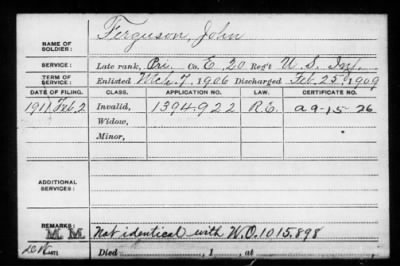 Ferguson, John
NAME OF SOLDIER:
SERVICE: Late rank, Pri. Co. E, 20 Reg't U. S. Inf.
TERM OF SERVICE: Enlisted Mch. 7, 1906 Discharged Feb. 25, 1909
DATE OF FILING. CLASS. APPLICATION NO. LAW. CERTIFICATE NO.
1911 Feb 2 Invalid, 1394922 R.E. a9-15-26
Widow,
Minor,
ADDITIONAL SERVICES:
REMARKS: Not identical with W.O. 1015.898
M M
Died , 1 , at